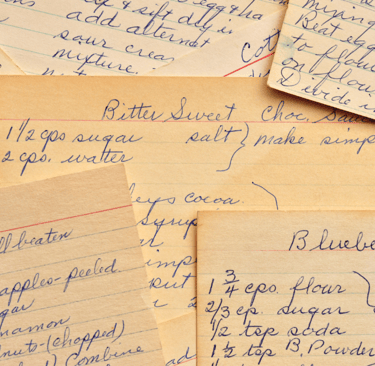 & sift dry in
add alternat
sour crea
mixture.
Beat egg
to flou
on flou
Divide in
Bitter Sweet Choc. Sau
1 1/2 cps sugar salt } make simp
2 cps. water
eys cocoa.
syrup
ll beaten
apples-peeled.
gar
namon
nuts-(chopped)
Combine
ad
Bluebe
1 3/4 cps. flour
2/3 cp. sugar
1/2 tsp soda
1 1/2 tsp B. Powder